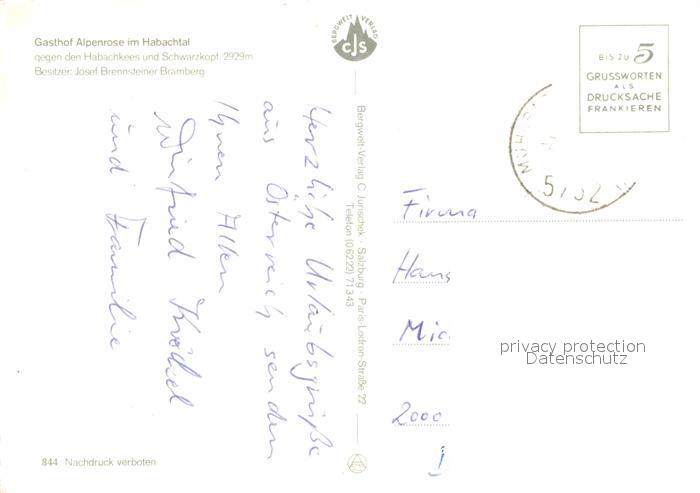 Gasthof Alpenrose im Habachtal
gegen den Habachkees und Schwarzkopf, 2929m
Besitzer: Josef Brennsteiner Bramberg
BERGWELT VERLAG
CJS
BIS ZU 5
GRUSSWORTEN
ALS
DRUCKSACHE
FRANKIEREN
5732
Herzliche Urlaubsgrüße
aus Österreich senden
Ihnen Allen
Winfried
und Familie
Bergwelt-Verlag C Jurischek · Salzburg · Paris-Lodron-Straße 22
Telefon (06222) 71343
Firma
Hans
Mic
2000
privacy protection
Datenschutz
844 Nachdruck verboten